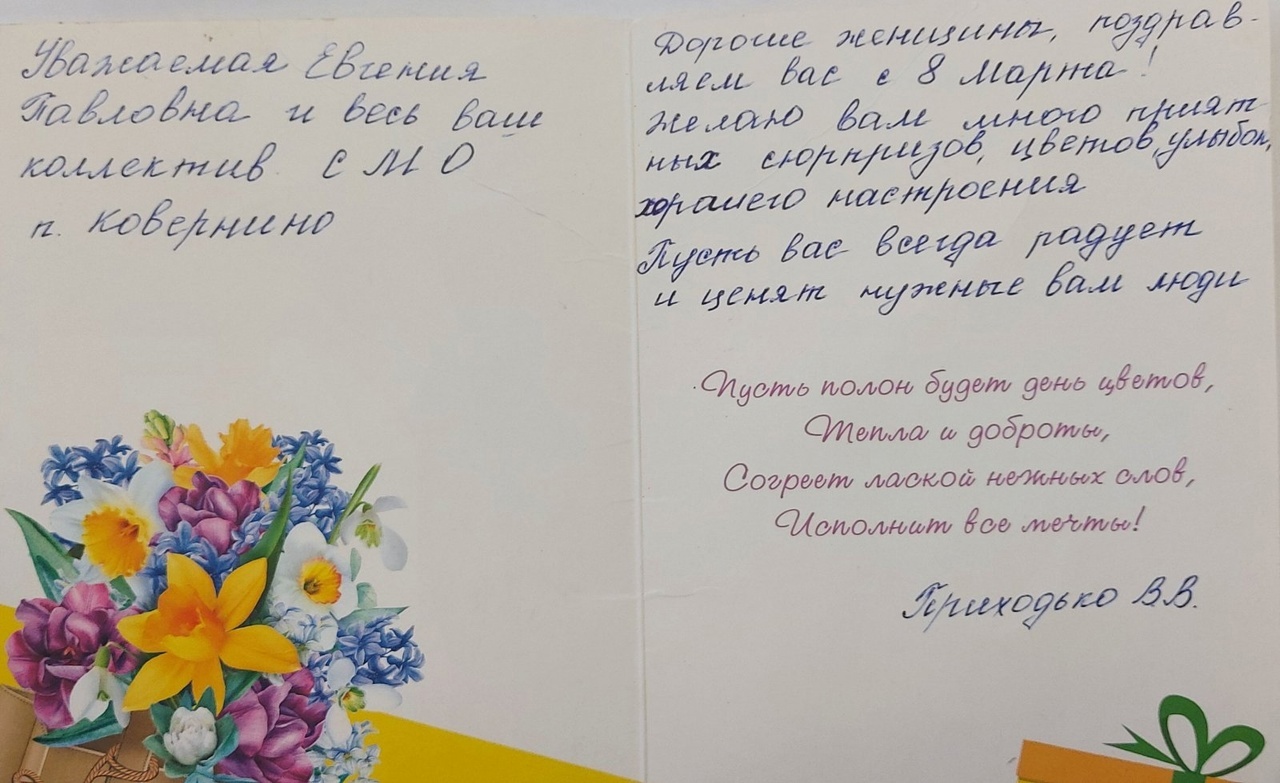 Уважаемая Евгения
Павловна и весь ваш
коллектив СМО
п. Ковернино
Дорогие женщины, поздрав-
ляем вас с 8 Марта!
Желаю вам много прият
ных сюрпризов, цветов, улыбок,
хорошего настроения
Пусть вас всегда радует
и ценят нужные вам люди
Пусть полон будет день цветов,
Тепла и доброты,
Согреет лаской нежных слов,
Исполнит все мечты!
Приходько В.В.